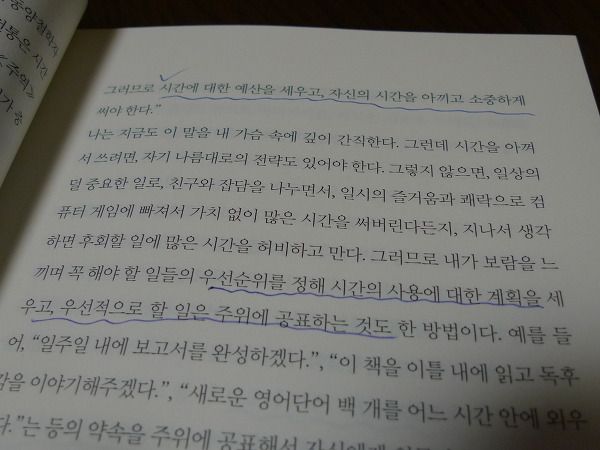 동양철학자
시간
《주역》
그러므로 시간에 대한 예산을 세우고, 자신의 시간을 아끼고 소중하게
써야 한다.”
나는 지금도 이 말을 내 가슴 속에 깊이 간직한다. 그런데 시간을 아껴
서 쓰려면, 자기 나름대로의 전략도 있어야 한다. 그렇지 않으면, 일상의
덜 중요한 일로, 친구와 잡담을 나누면서, 일시의 즐거움과 쾌락으로 컴
퓨터 게임에 빠져서 가치 없이 많은 시간을 써버린다든지, 지나서 생각
하면 후회할 일에 많은 시간을 허비하고 만다. 그러므로 내가 보람을 느
끼며 꼭 해야 할 일들의 우선순위를 정해 시간의 사용에 대한 계획을 세
우고, 우선적으로 할 일은 주위에 공표하는 것도 한 방법이다. 예를 들
어, “일주일 내에 보고서를 완성하겠다.”, “이 책을 이틀 내에 읽고 독후
감을 이야기해주겠다.”, “새로운 영어단어 백 개를 어느 시간 안에 외우
다.”는 등의 약속을 주위에 공표해서